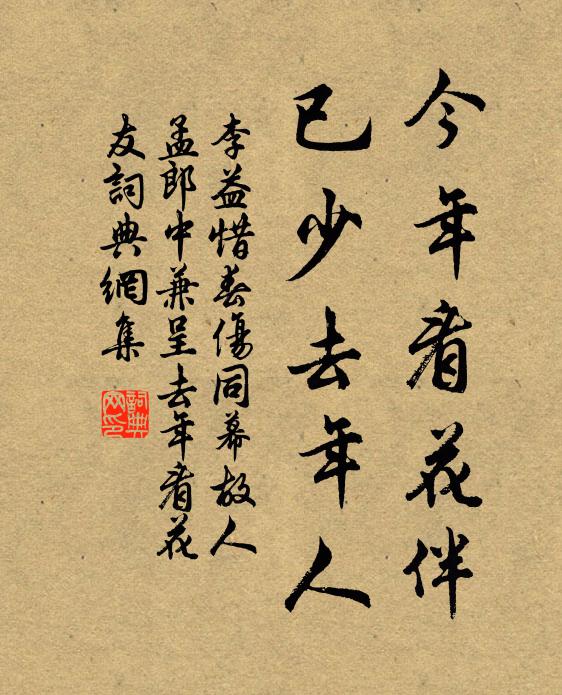 今年看花伴
已少去年人
李益惜春傷同幕故人
孟郎中兼呈去年看花
友詞典網集
詞典网印